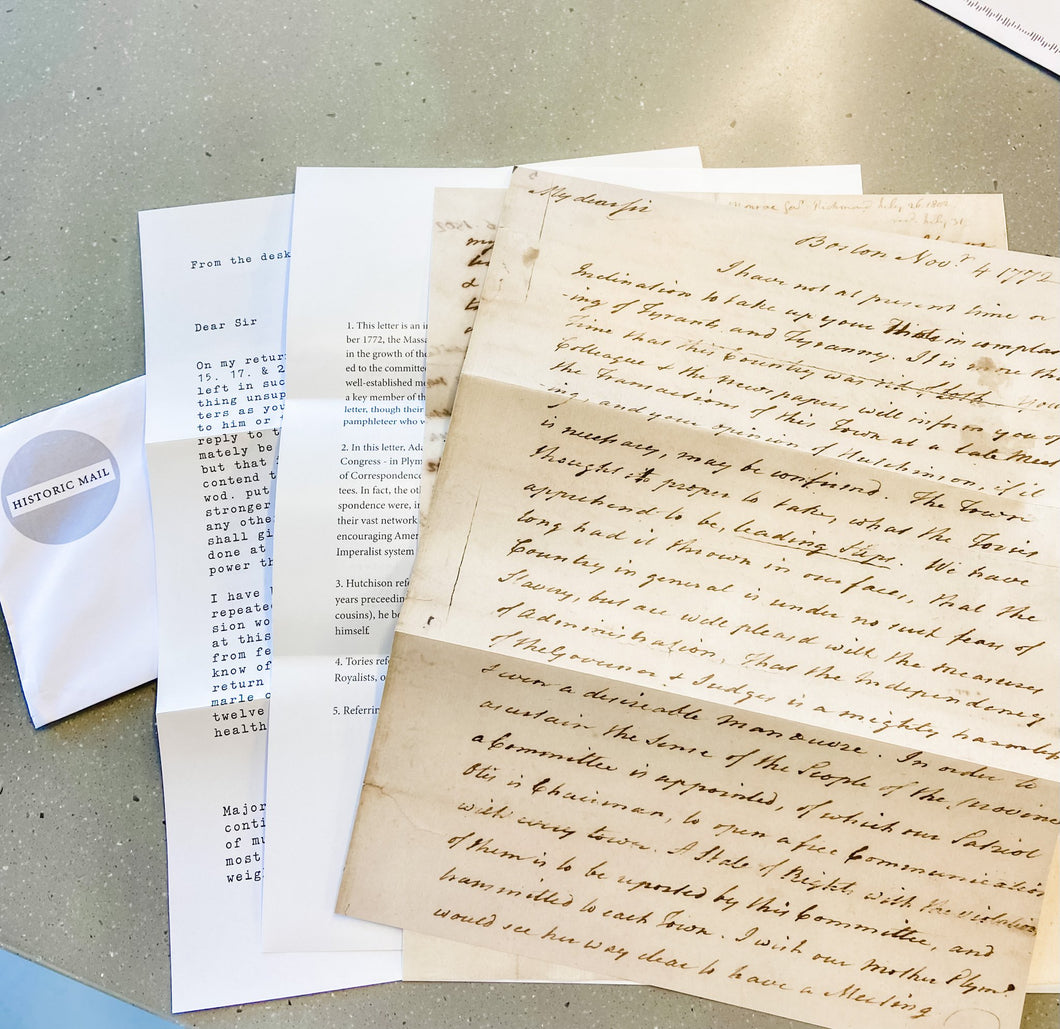 HISTORIC MAIL
From the desk
Dear Sir
On my retur
15. 17. & 2
left in suc
thing unsup
ters as you
to him or
reply to t
mately be
but that
contend t
wod. put
stronger
any othe
shall gi
done at
power th
I have
repeate
sion wo
at this
from fe
know of
return
marle
twelve
health
Major
conti
of mu
most
weig
1. This letter is an i
ber 1772, the Massa
in the growth of the
ed to the committe
well-established me
a key member of th
letter, though their
pamphleteer who w
2. In this letter, Ada
Congress - in Plym
of Correspondence
tees. In fact, the ot
spondence were, i
their vast network
encouraging Amer
Imperialist system
3. Hutchison ref
years preceeding
cousins), he be
himself.
4. Tories ref
Royalists, o
5. Referrin
6 1802
my
&
Monroe Govr. Richmond July 26. 1802.
recd. July 31.
My dear sir
Boston Novr. 4 1772
I have not at present time or
Inclination to take up your Hints in complain
-ing of Tyrants and Tyranny. It is more tha
Time that this Country was rid of both. Your
Colleague & the News papers will inform you of
the Transactions of this Town at a late Meet
ing, and your opinion of Hutchinson, if it
is necessary, may be confirmd. The Town
thought it proper to take, what the Tories
apprehend to be, leading Steps. We have
long had it thrown in our faces, that the
Country in general is under no such fears of
Slavery, but are well pleased with the measures
of Administration, that the Independency
of the Governor & Judges is a mighty harmless
& even a desireable manouvre. In order to
ascertain the Sense of the People of the Province
a Committee is appointed, of which our Patriot
Otis is Chairman, to open a free Communication
with every town. A State of Rights with the violations
of them is to be reported by this Committee, and
transmitted to each Town. I wish our mother Plymo.
would see her way clear to have a Meeting